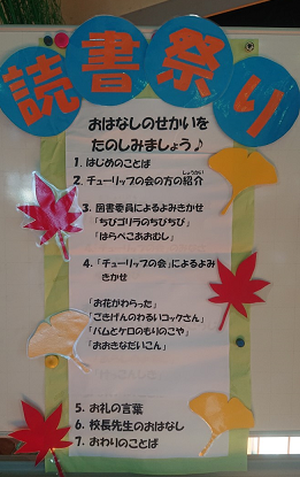 読書祭り
おはなしのせかいを
たのしみましょう♪
1. はじめのことば
2. チューリップの会の方の紹介
3. 図書委員によるよみきかせ
「ちびゴリラのちびちび」
「はらぺこあおむし」
4. 「チューリップの会」によるよみ
きかせ
「お花がわらった」
「ごきげんのわるいコックさん」
「バムとケロのもりのこや」
「おおきなだいこん」
5. お礼の言葉
6. 校長先生のおはなし
7. おわりのことば